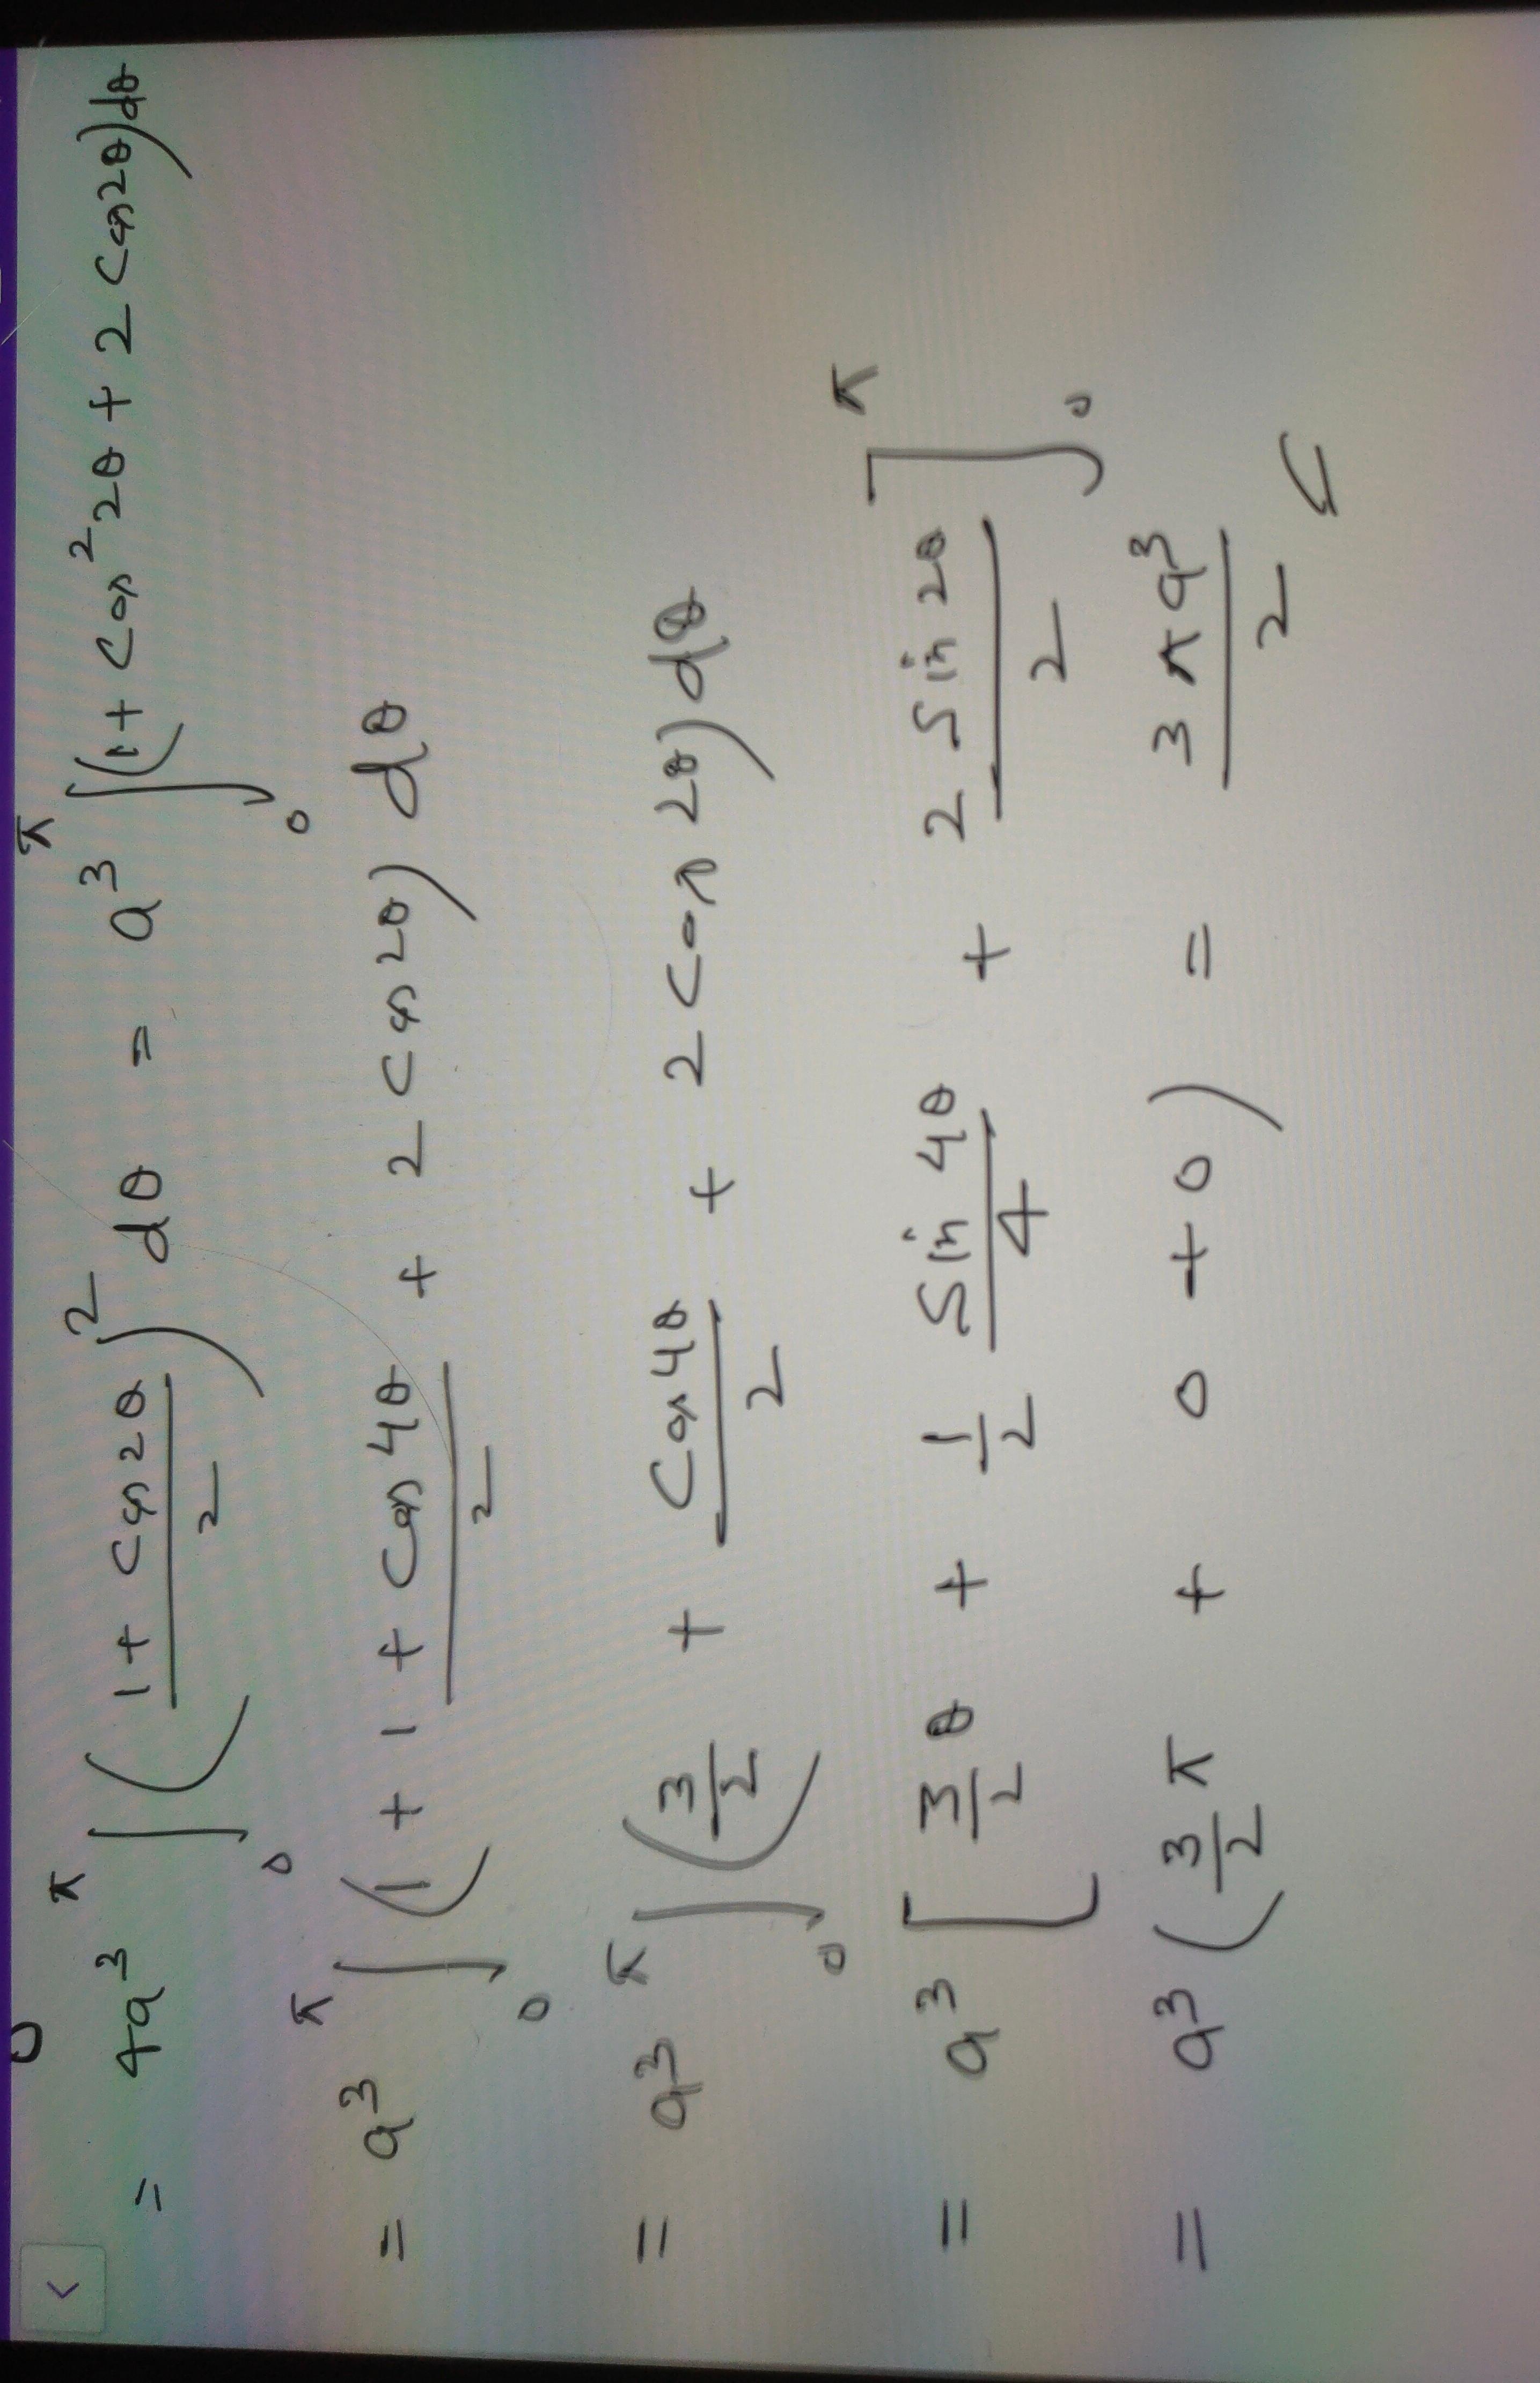 = 4a³ ∫₀^π ((1 + cos 2θ)/2)² dθ = a³ ∫₀^π (1 + cos² 2θ + 2 cos 2θ) dθ
= a³ ∫₀^π (1 + (1 + cos 4θ)/2 + 2 cos 2θ) dθ
= a³ ∫₀^π (3/2 + cos 4θ/2 + 2 cos 2θ) dθ
= a³ [3/2 θ + 1/2 sin 4θ/4 + 2 sin 2θ/2]₀^π
= a³ (3/2 π + 0 + 0) = 3πa³/2